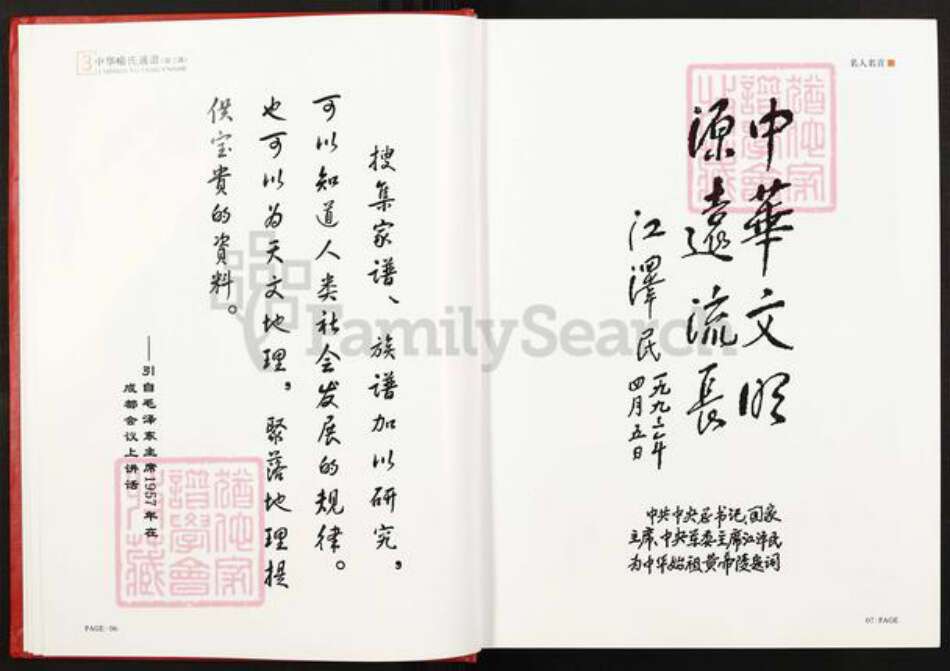 中华喻氏通谱
搜集家谱、族谱加以研究，
可以知道人类社会发展的规律。
也可以为天文地理，聚落地理提
供宝贵的资料。
——引自毛泽东主席1957年在
成都会议上讲话
PAGE · 06
名人名言
中華文明
源遠流長
江澤民
一九九三年
四月五日
中共中央总书记、国家
主席、中央军委主席江泽民
为中华始祖黄帝陵题词
07 · PAGE
FamilySearch